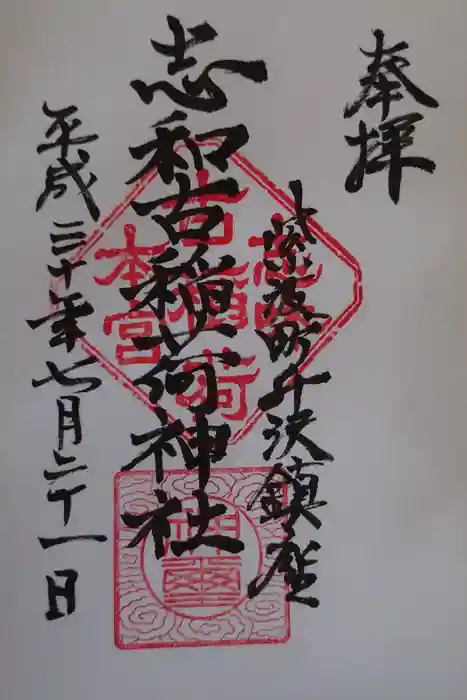 奉拝
紫波町升沢鎮座
志和古稲荷神社
平成三十年七月二十一日
志和
古稲荷
本宮
神璽